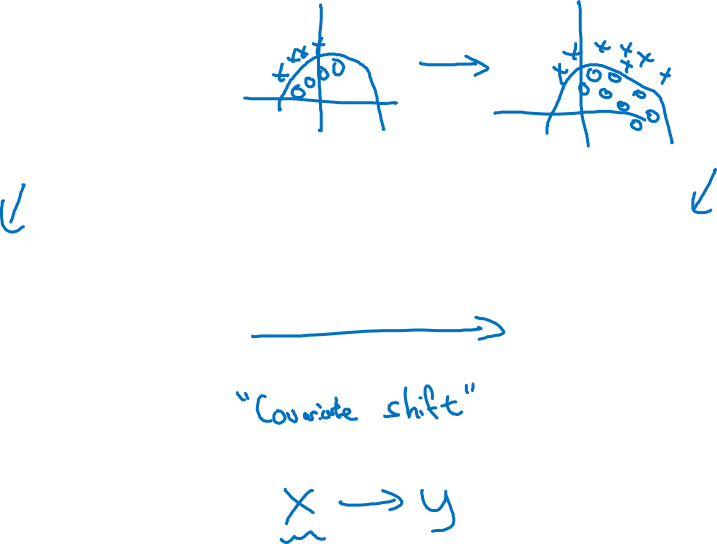 "Covariate shift"
x → y